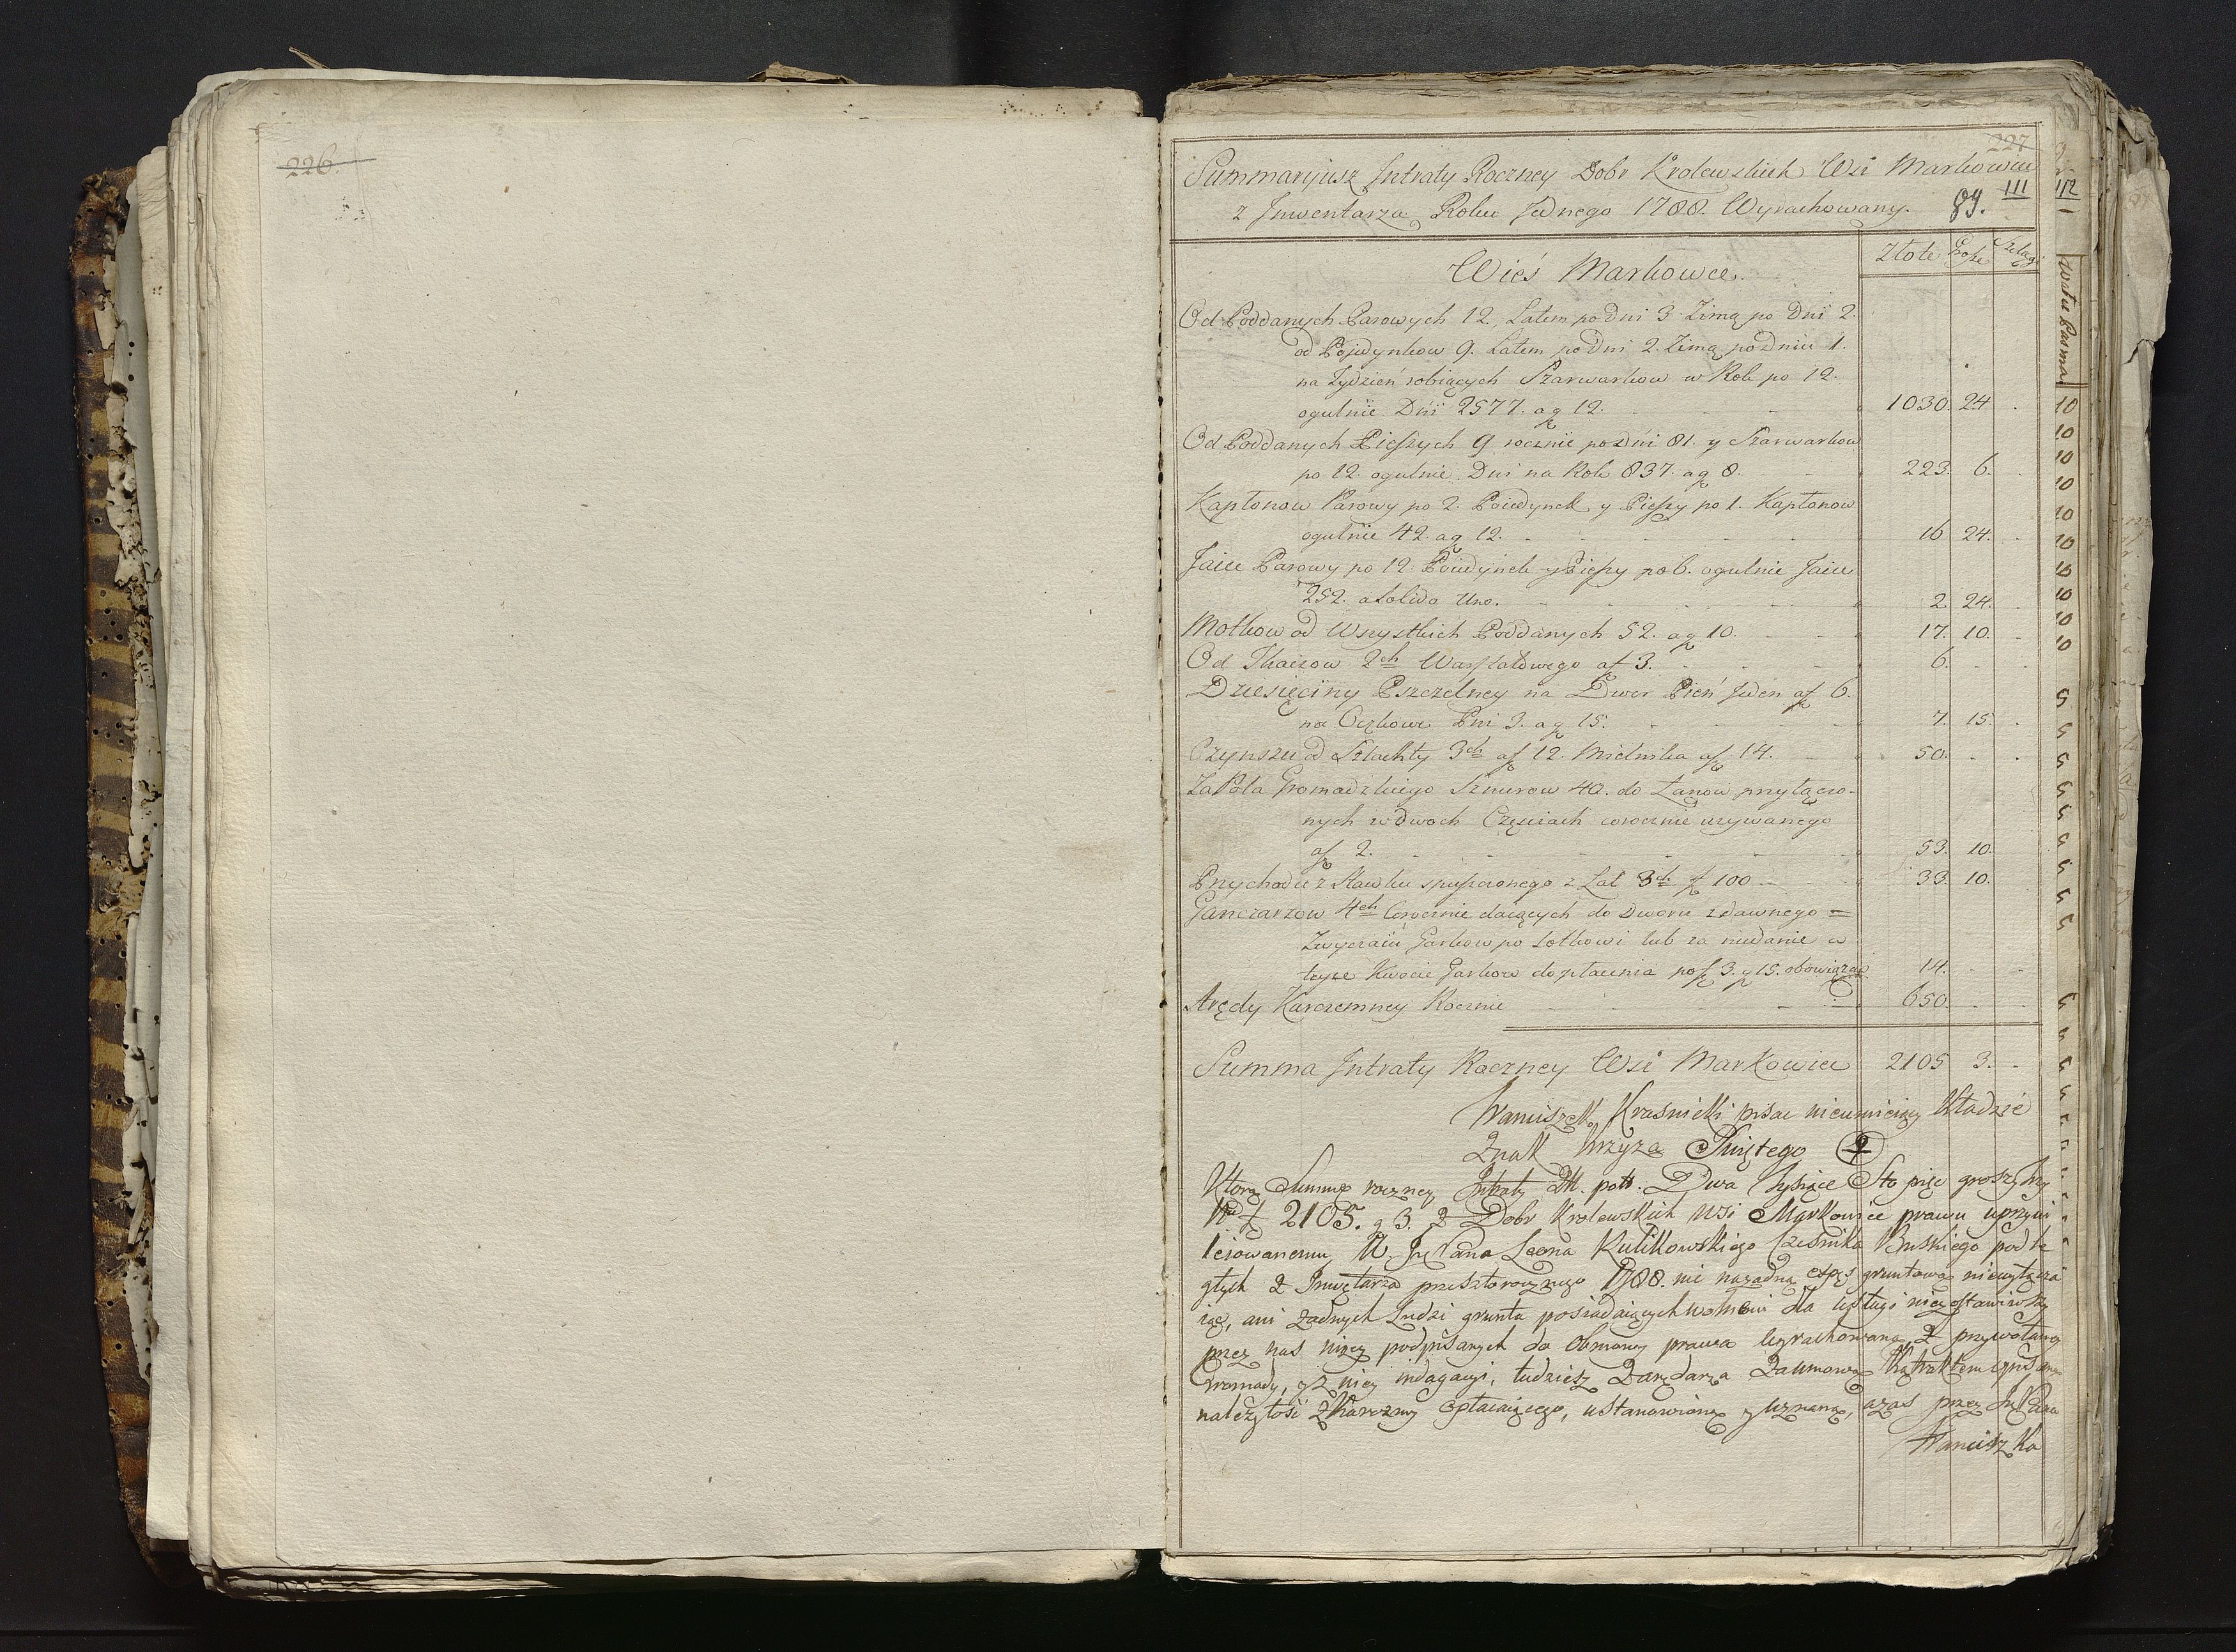 226.
227
Summaryusz Intraty Roczney Dobr Krolewskich Wsi Markowiec
III
112
z Inwentarza Roku Jednego 1788. Wyrachowany.
89.
Złote Grosze Szelągi
Wieś Markowce.
Od Poddanych Parowych 12, Latem po Dni 3 Zimą po Dni 2.
od Pojedynkow 9. Latem po Dni 2. Zimą po dniu 1.
na Tydzień robiących Szarwarkow w Rok po 12.
ogulnie Dni 2577. a g 12. 1030. 24 .
Od Poddanych Pieszych 9 rocznie po dni 81. y Szarwarkow
po 12. ogulnie Dni na Rok 837. a g 8 223. 6. .
Kapłonow Parowy po 2. Poiedynek y Pieszy po 1. Kapłonow
ogulnie 42. a g 12. 16 24. .
Jaiec Parowy po 12. Poiedynek y Pieszy po 6. ogulnie Jaiec
252. a Solido Uno. 2. 24. .
Motkow od Wszystkich Poddanych 52. a g 10. 17. 10. .
Od Tkaczow 2ch Warsztatowego a f 3. 6. . .
Dziesięciny Pszczelney na Dwor Pień Jeden a f 6.
na Oczkowe Pni 3. a g 15. 7. 15. .
Czynszu od Szlachty 3ch a f 12. Mielnika a f 14. 50. . .
Za Pola Gromadzkiego Sznurow 40. do Łanow przyłączo-
nych w dwoch Częsciach corocznie używanego
a f 2. 53. 10.
Przychodu z Stawku spuszczonego z Lat 3ch f 100 33. 10.
Ganczarzow 4ch Corocznie daiących do Dworu z dawnego =
Zwyczaiu Garkow po Sotkowi lub za niedanie w
teyze Kwocie Garkow do płacenia po f 3. g 15. obowiązan. 14. . .
Arędy Karczemney Rocznie 650. . .
Summa Intraty Roczney Wsi Markowiec 2105 3. .
Franciszek Krasnicki pisac nieumieiący Kładzie
Znak Krzyza Swiętego
Ktorą Summę roczney Intraty Zł. pol. Dwa Tysiące Sto pięc groszy trzy
No f 2105. g 3. z Dobr Krolewskich wsi Markowiec prawu uprzywi
leiowanemu W. Jmć Pana Leona Kulikowskiego Czesnika Buskiego podle
głych z Inwętarza przeszłorocznego 1788. nic na żadną expęs gruntową niewyłącza
iąc, ani żadnych Ludzi grunta posiadaiących wolnemi dla usługi nieostawiwszy
przez nas niżey podpisanych do Obmowy prawa wyrachowaną, z przywołaney
Gromady, y z niey indagacyi, tudziesz Darędarza Zaumową Kątraktem czynszową
należytość z Karczmy opłacaiącego, ustanowioną y uznaną, a zas przez Jmć Pana
Franciszka